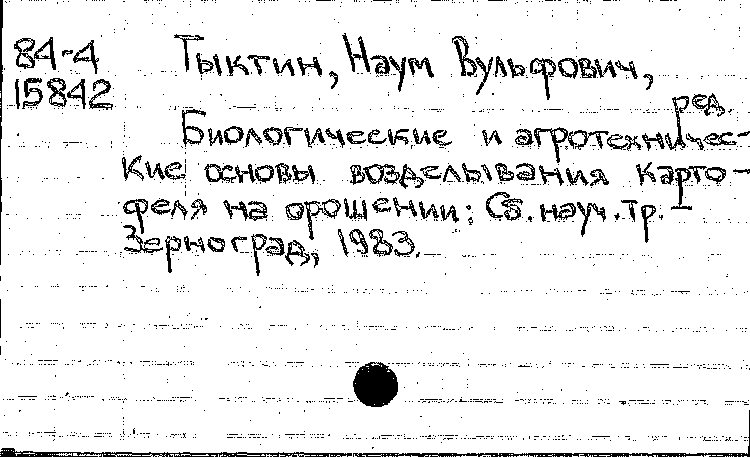 84-4 Тыктин, Наум Вульфович,
15842
ред.
Биологические и агротехничес-
кие основы возделывания карто-
феля на орошении: Сб. науч. тр. –
Зерноград, 1983.